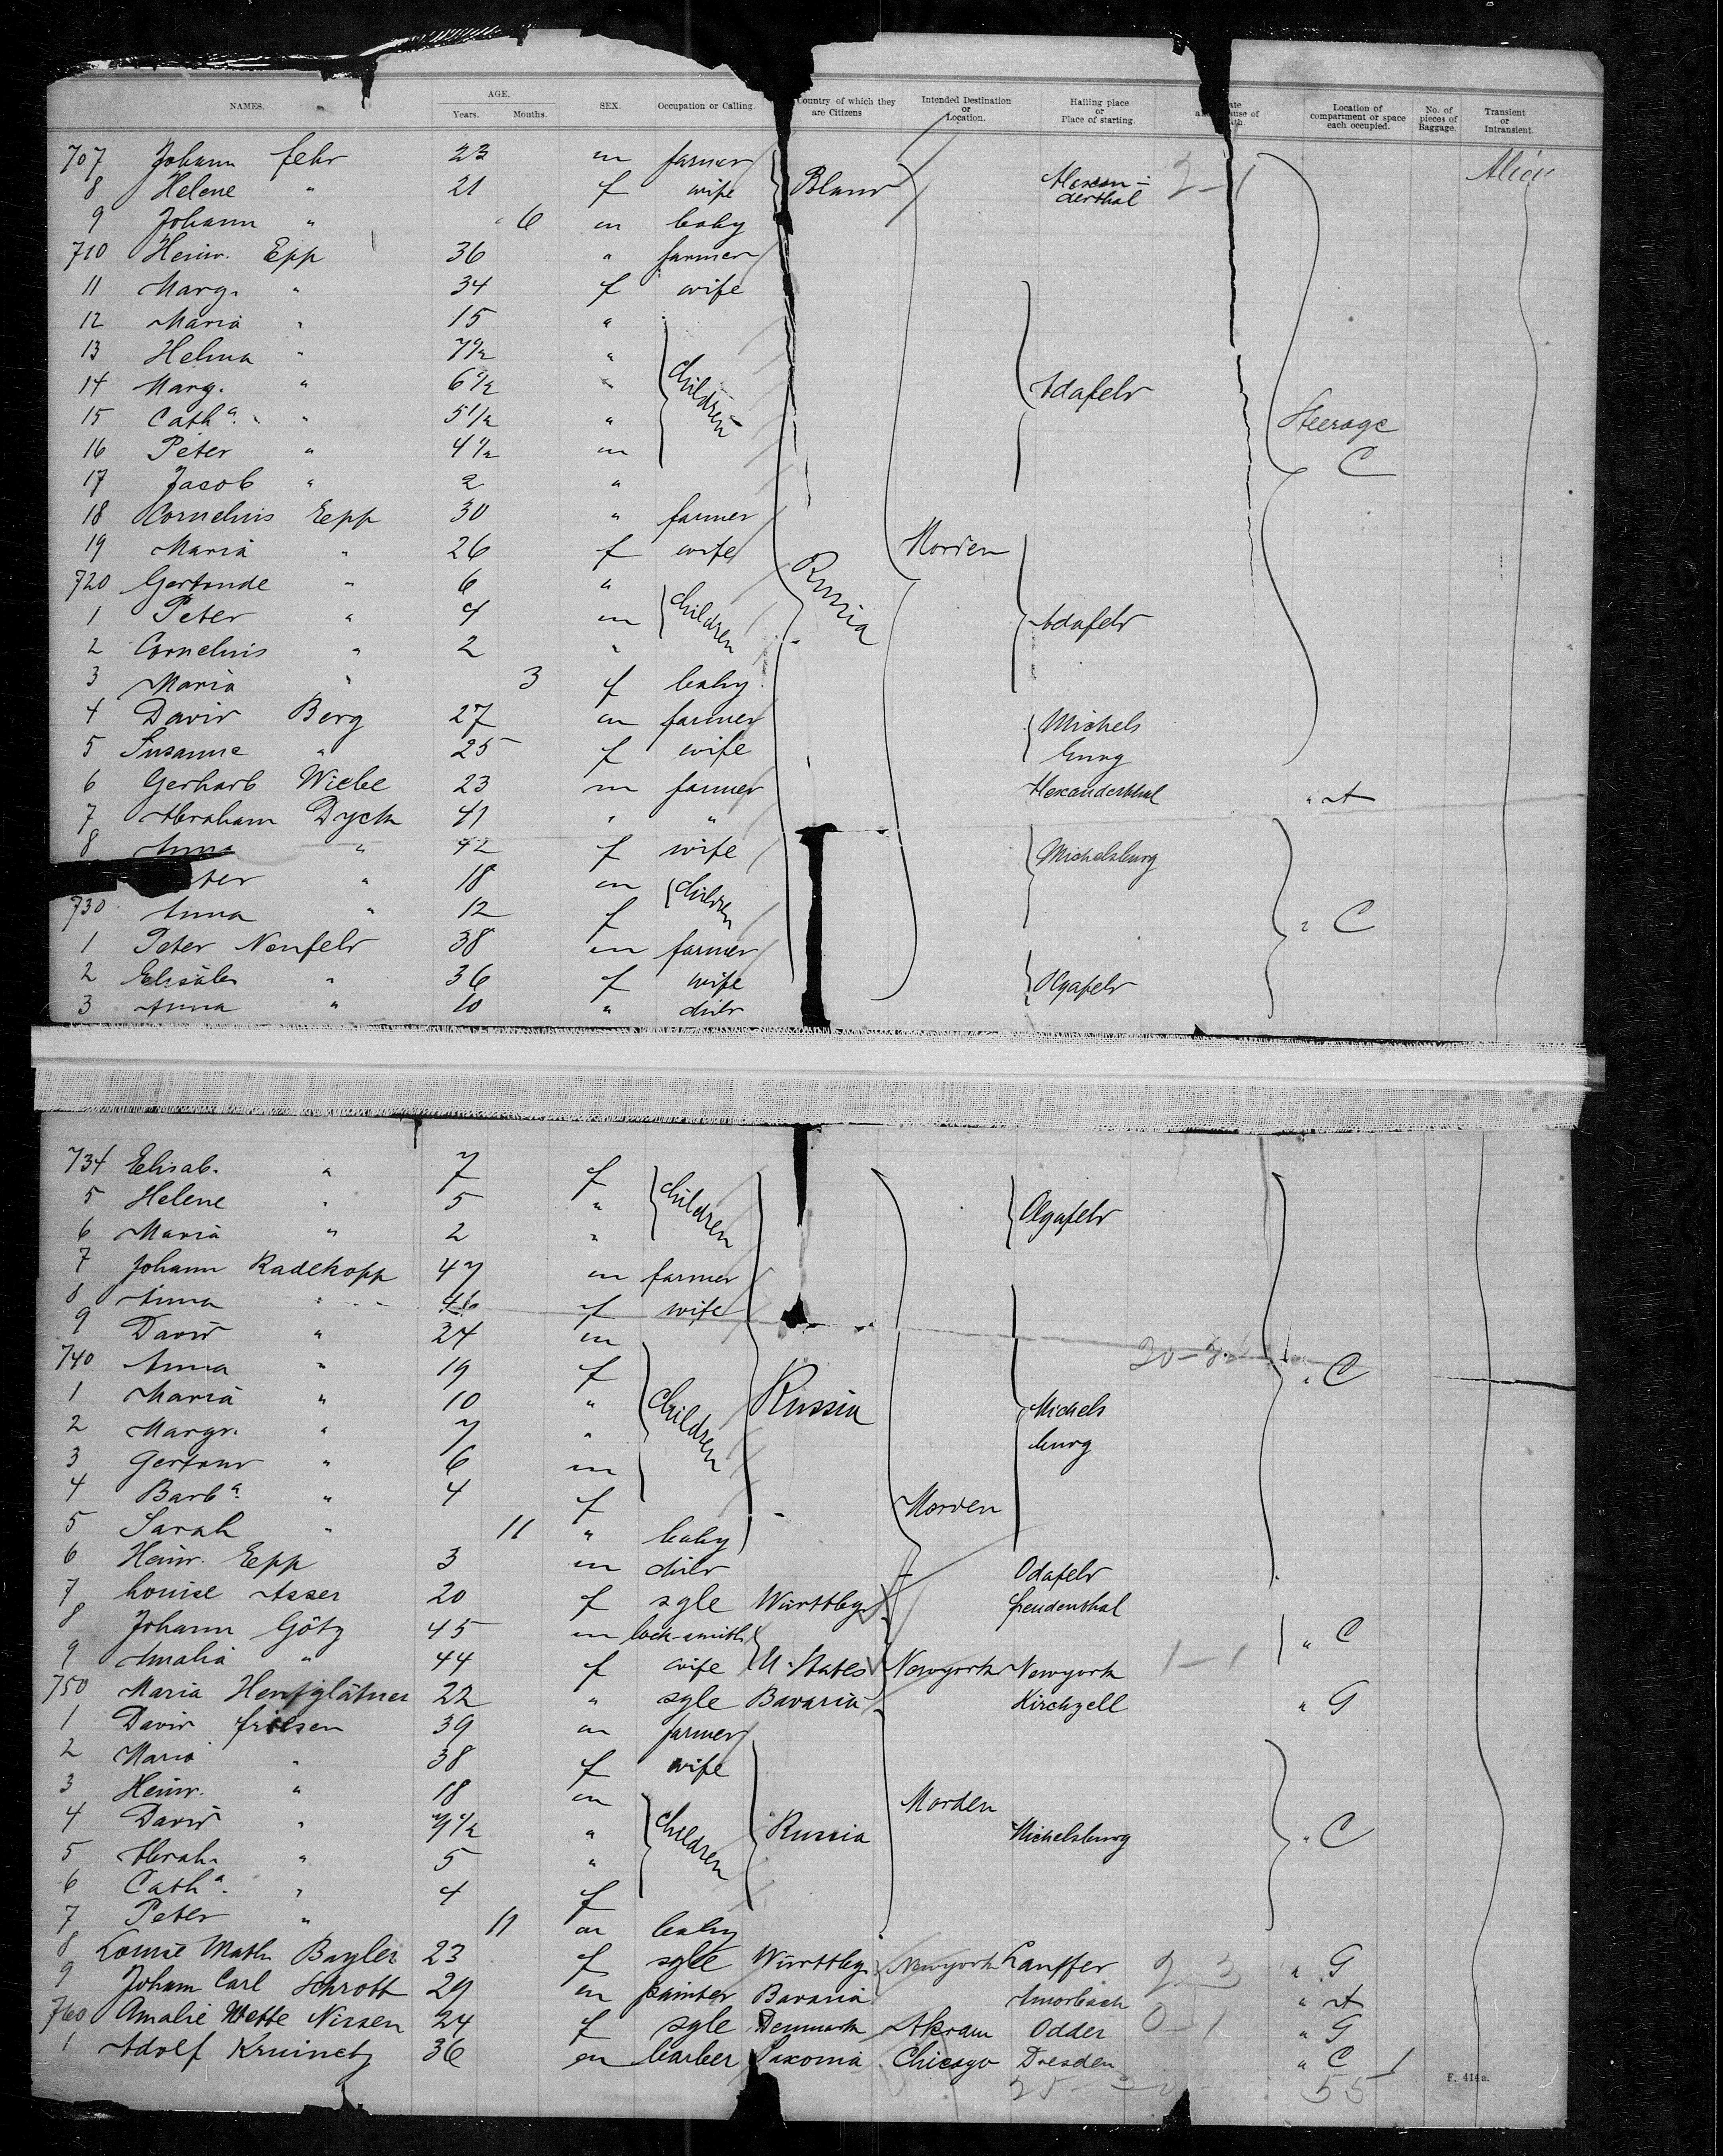 NAMES. AGE. Years. Months. SEX. Occupation or Calling. Country of which they are Citizens Intended Destination or Location. Hailing place or Place of starting. Location of compartment or space each occupied. No. of pieces of Baggage. Transient or Intransient.
707 Johann Fehr 23 m farmer
8 Helene " 21 f wife Alexanderthal 2-1
9 Johann " 6 m baby
710 Heinr. Epp 36 " farmer
11 Marg. " 34 f wife
12 Maria " 15 "
13 Helena " 7½ "
14 Marg. " 6½ " children Adafeld
15 Catha. " 5½ " Steerage
16 Peter " 4½ m C
17 Jacob " 2 "
18 Cornelius Epp 30 " farmer
19 Maria " 26 f wife Russia Morden
720 Gertrude " 6 "
1 Peter " 4 m children Adafeld
2 Cornelius " 2 "
3 Maria " 3 f baby
4 David Berg 27 m farmer Michels
5 Susanne " 25 f wife burg
6 Gerhard Wiebe 23 m farmer Alexanderthal " A
7 Abraham Dyck 41 " "
8 Anna " 42 f wife Michelsburg
" 18 m children
730 Anna " 12 f " C
1 Peter Neufeld 38 m farmer
2 Elisab. " 36 f wife Olgafeld
3 Anna " 10 " child
734 Elisab. " 7 f
5 Helene " 5 " children Olgafeld
6 Maria " 2 "
7 Johann Radekopp 47 m farmer
8 Anna " 46 f wife
9 David " 24 m
740 Anna " 19 f " C
1 Maria " 10 " children Russia Michels
2 Margr. " 7 " burg
3 Gertrud " 6 m
4 Barba. " 4 f Morden
5 Sarah " 11 " baby
6 Heinr. Epp 3 m child Odafeld
7 Louise Asser 20 f sgle Württbg. Freudenthal
8 Johann Götz 45 m lock-smith " C
9 Amalia " 44 f wife U. States Newyork Newyork 1-1
750 Maria 22 " sgle Bavaria Kirchzell " G
1 David Friesen 39 m farmer
2 Maria " 38 f wife
3 Heinr. " 18 m Morden
4 David " 7½ " children Russia Michelsburg " C
5 Abrah. " 5 "
6 Catha. " 4 f
7 Peter " 11 m baby
8 Louise Math. Bayler 23 f sgle Württbg. Newyork Lauffer 2-3 " G
9 Johann Carl Schrott 29 m painter Bavaria Amorbach " A
760 Amalie Mette Nissen 24 f sgle Denmark Akram Odder 0-1 " G
1 Adolf 36 m barber Saxonia Chicago Dresden " C
55
F. 414a.